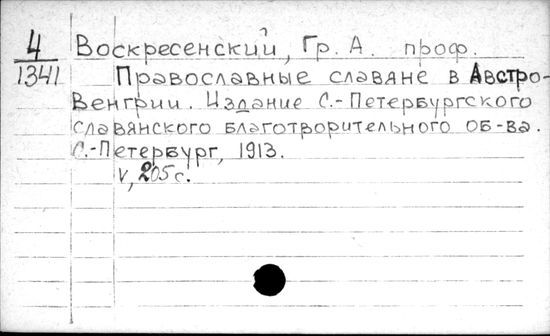 4 Воскресенский, Гр. А. проф.
1341 Православные славяне в Австро-
Венгрии. Издание С.-Петербургского
славянского благотворительного об-ва.
С.-Петербург, 1913.
V, 205 с.